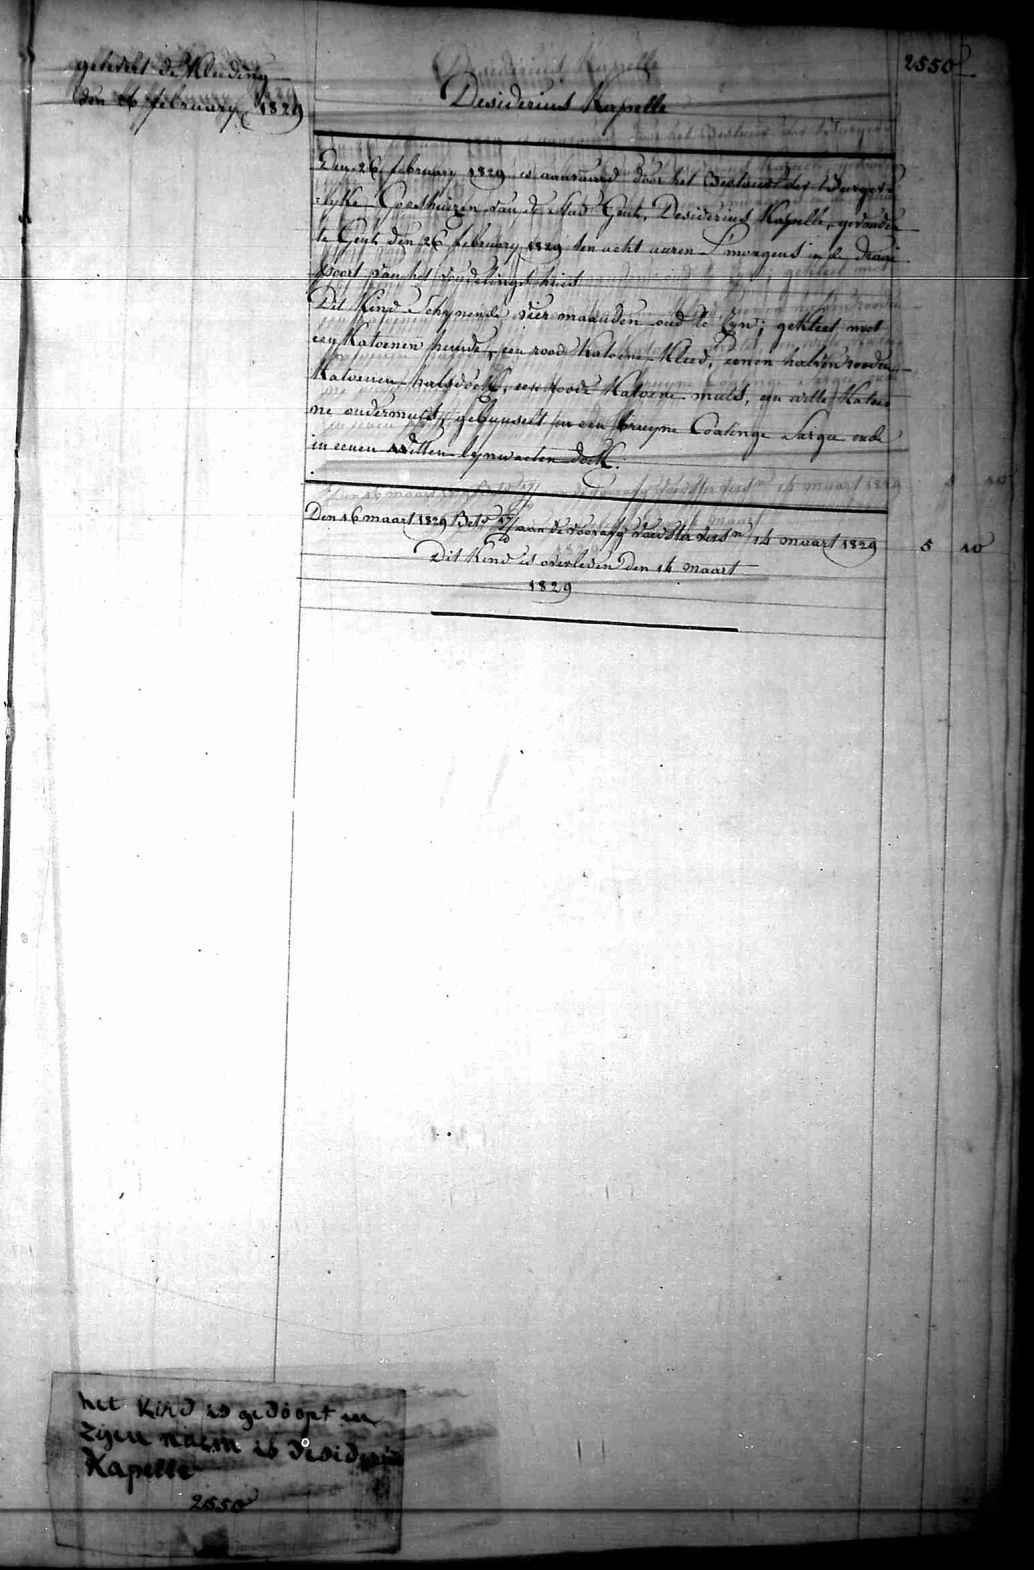 gelevert de Kleeding
den 26 february 1829
2550
Desiderius Kapelle
Den 26 february 1829 is aanvaard door het Bestuur der Burger=
=lyke Godshuizen van de Stad Gent, Desiderius Kapelle, gevonden
te Gent den 26 february 1829 ten acht uuren S'morgens in de draai
poort van het vondelingshuis
Dit Kind Schynende vier maanden oud te Zyn; gekleet met
een Katoenen hemde, een rood Katoene Kleed, eenen halven rooden
Katoenen halsdoek, een roode Katoene muts, een witte Katoe
ne ondermuts, gebunselt in een bruyne Coatinge Sargie ende
in eenen Witten lynwaeten doek.
Den 16 maart 1829 Bet. aan de voorsz voedster sedert 14 maart 1829 5 10
Dit Kind is overleden den 14 maart
1829
het Kind is gedoopt en
zijen naem is desiderius
Kapelle
2550